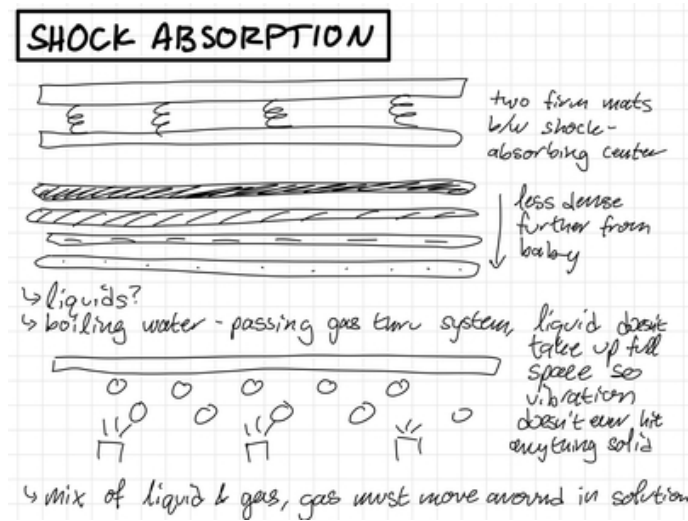 SHOCK ABSORPTION
two firm mats
b/w shock-
absorbing center
less dense
further from
baby
↳ liquids?
↳ boiling water - passing gas thru system, liquid doesn't
take up full
space so
vibration
doesn't ever hit
anything solid
↳ mix of liquid & gas, gas must move around in solution